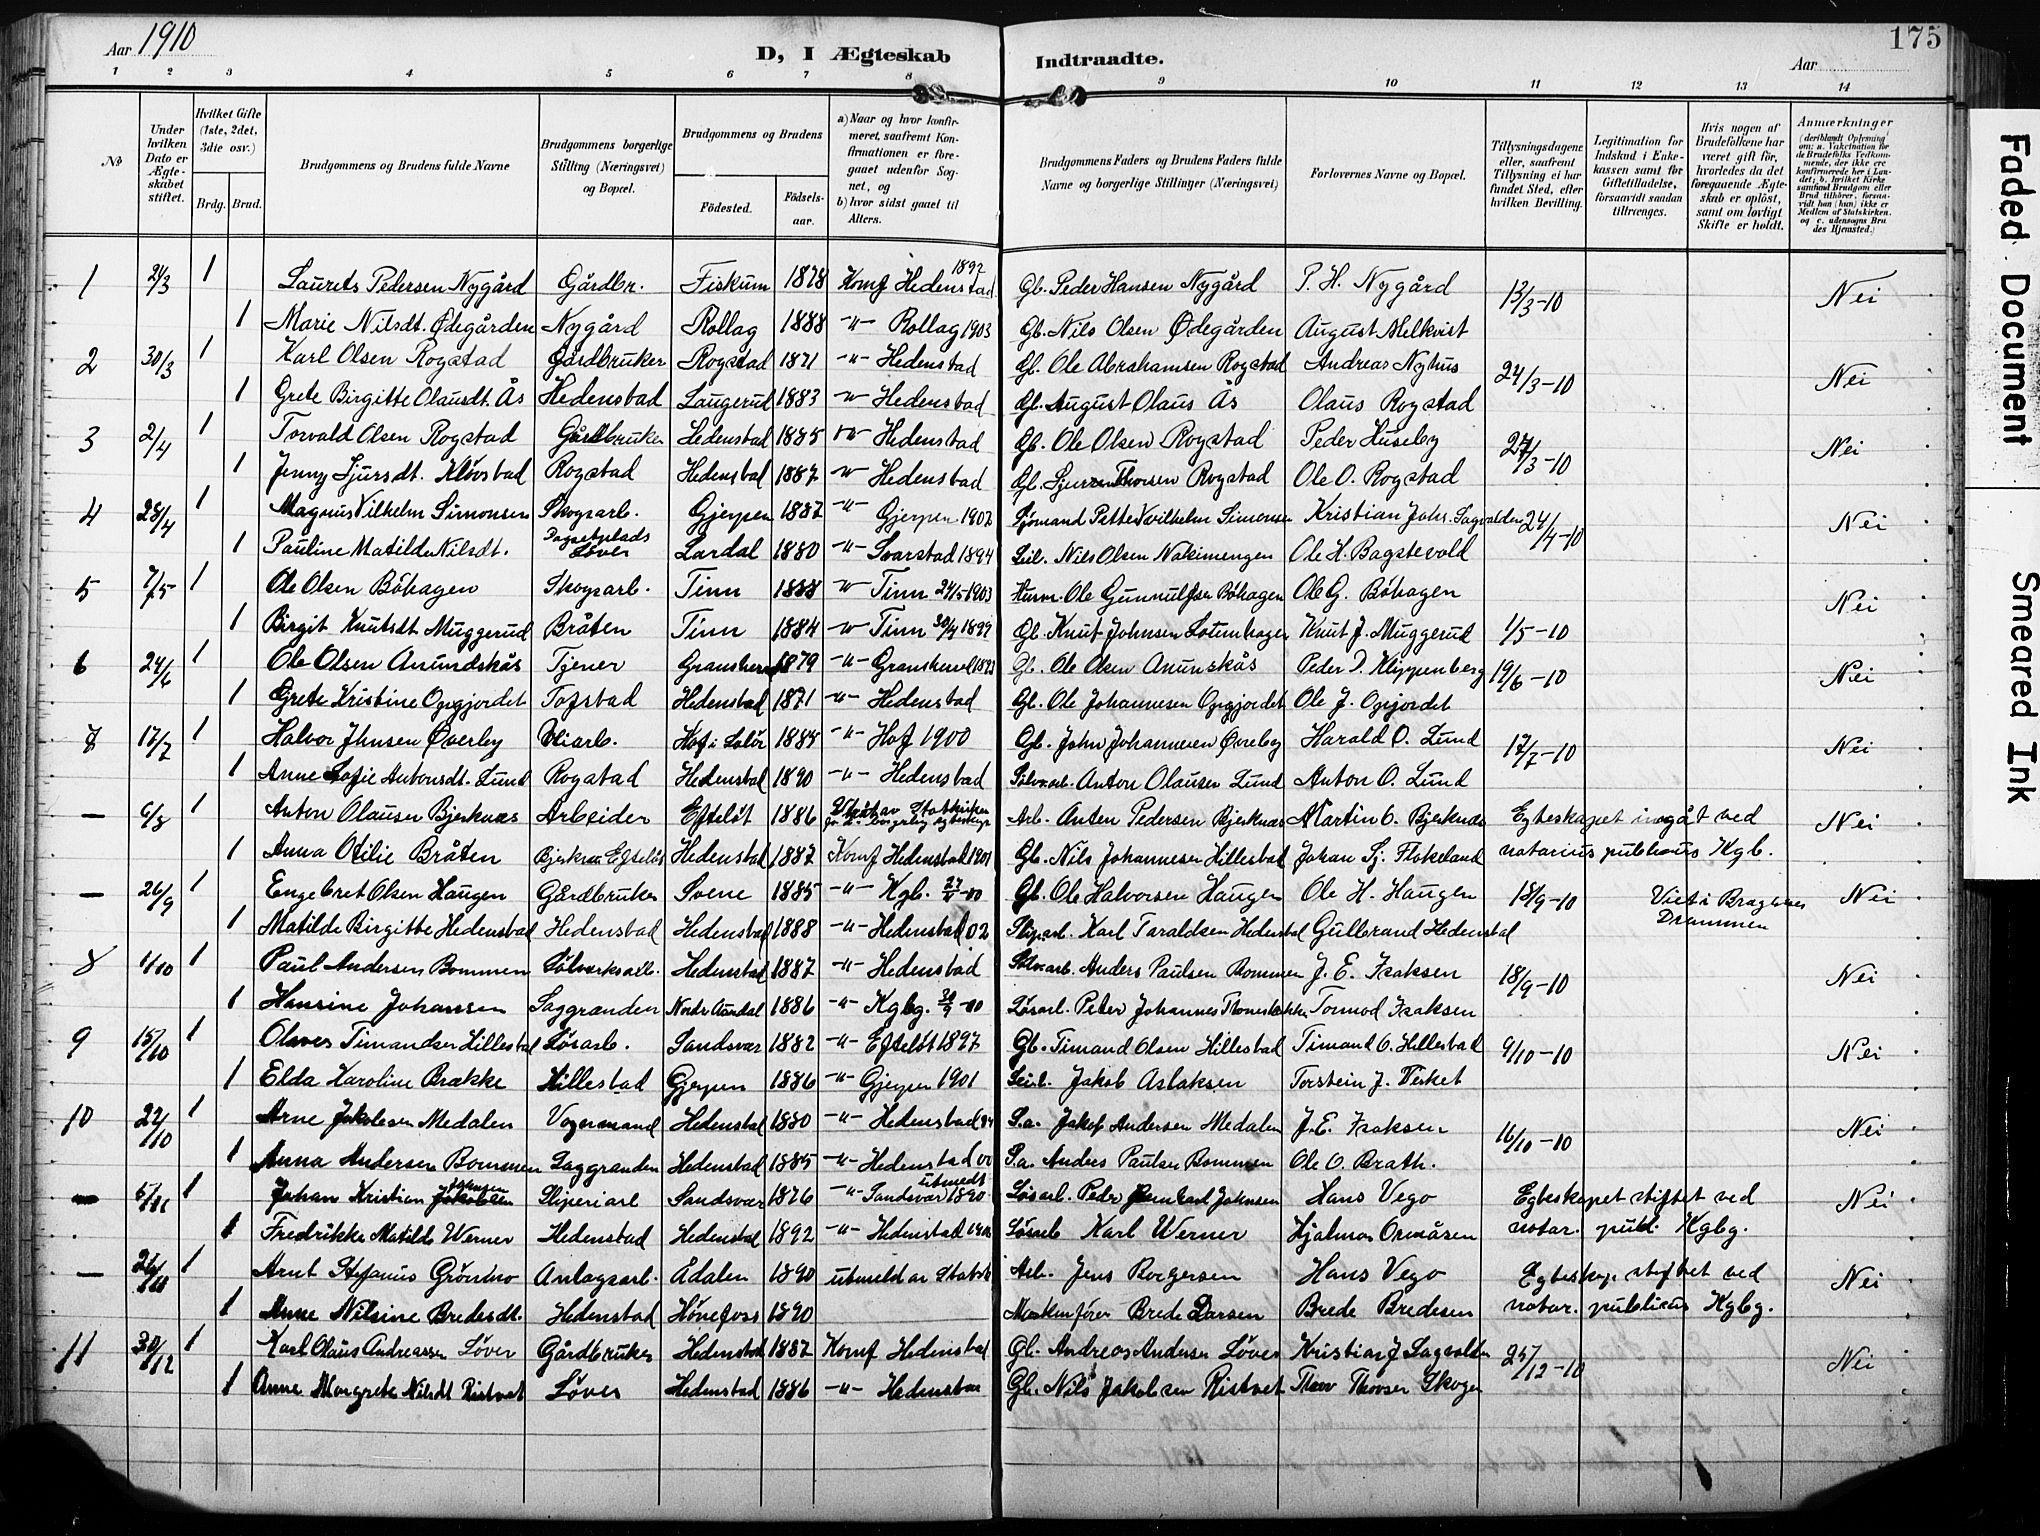 Aar 1910
D, I Ægteskab Indtraadte.
Aar
175
1 2 3 4 5 6 7 8 9 10 11 12 13 14
No
Under hvilken Dato er Ægteskabet stiftet.
Hvilket Gifte (1ste, 2det, 3die osv.)
Brdg. Brud.
Brudgommens og Brudens fulde Navne
Brudgommens borgerlige Stilling (Næringsvei) og Bopæl.
Brudgommens og Brudens
Fødested. Fødselsaar.
a) Naar og hvor konfirmeret, saafremt Konfirmationen er foregaaet udenfor Sognet, og
b) hvor sidst gaaet til Alters.
Brudgommens Faders og Brudens Faders fulde Navne og borgerlige Stillinger (Næringsvei)
Forlovernes Navne og Bopæl.
Tillysningsdagene eller, saafremt Tillysning ei har fundet Sted, efter hvilken Bevilling.
Legitimation for Indskud i Enkekassen samt for Giftetilladelse, forsaavidt saadan tiltrænges.
Hvis nogen af Brudefolkene har været gift før, hvorledes da det foregaaende Ægteskab er opløst, samt om lovligt Skifte er holdt.
Anmærkninger
(deriblandt Oplysning om: a. Vakcination for de Brudefolks Vedkommende, der ikke ere konfirmerede her i Landet; b. hvilket Kirkesamfund Brudgom eller Brud tilhører, forsaavidt han (hun) ikke er Medlem af Statskirken, og c. udensogns Brudes Hjemsted.)
1 2/3 1 Laurits Pedersen Nygård Gårdbr. Fiskum 1878 Konf Hedenstad 1892 Gb. Peder Hansen Nygård P. H. Nygård 13/3-10 Nei
1 Marie Nilsdt. Ødegården Nygård Rollag 1888 -"- Rollag 1903 Gb. Nils Olsen Ødegården August Melkvist
2 30/3 1 Karl Olsen Rogstad Gårdbruker Rogstad 1871 -"- Hedenstad Gb. Ole Abrahamsen Rogstad Andreas Nyhus 24/3-10 Nei
1 Grete Birgitte Olausdt. Ås Hedenstad Laugerud 1883 -"- Hedenstad Gb. August Olaus Ås Olaus Rogstad
3 2/4 1 Torvald Olsen Rogstad Gårdbruker Hedenstad 1885 -"- Hedenstad Gb. Ole Olsen Rogstad Peder Huseby 27/3-10 Nei
1 Jenny Sjursdt. Klövstad Rogstad Hedenstad 1887 -"- Hedenstad Gb. Thorsen Rogstad Ole O. Rogstad
4 28/4 1 Magnus Vilhelm Simonsen Skogsarb. Gjerpen 1887 -"- Gjerpen 1902 Sjömand Vilhelm Simonsen Kristian Johs. Sagvolden 24/4-10 Nei
1 Pauline Matilde Nilsdt. Löver Lardal 1880 -"- Svarstad 1894 Nils Olsen Nakimengen Ole H. Bagstevold
5 7/5 1 Ole Olsen Böhagen Skogsarb. Tinn 1888 -"- Tinn 24/5 1903 Husm. Ole Gunnulfsen Böhagen Ole G. Böhagen 1/5-10 Nei
1 Birgit Knutsdt Muggerud Bråten Tinn 1884 -"- Tinn 30/4 1899 Gb. Knut Johnsen Knut J. Muggerud
6 24/6 1 Ole Olsen Anundskås Tjener Gransherred 1879 -"- Gransherred 1893 Gb. Ole Olsen Anunskås Peder D. Klippenberg 19/6-10 Nei
1 Grete Kristine Opgjordet Tofstad Hedenstad 1871 -"- Hedenstad Gb. Ole Johannesen Opgjordet Ole J. Opgjordet
7 17/7 1 Halvor Jhnsen Överby Veiarb. Hof i Solör 1885 -"- Hof 1900 Gb. John Johannesen Överby Harald O. Lund 17/7-10 Nei
1 Anne Sofie Antonsdt. Lund Rogstad Hedenstad 1890 -"- Hedenstad Sölvarb. Anton Olausen Lund Anton O. Lund
— 6/8 1 Anton Olausen Bjerknæs Arbeider Efteløt 1886 av Statskirken Arb. Anten Pedersen Bjerknæs Martin O. Bjerknæs Egteskapet ingåt ved Nei
1 Anna Otilie Bråten Bjerknæs Efteløt Hedenstad 1887 Konf Hedenstad 1901 Gb. Nils Johannesen Hillestad Johan Sj. Flokeland notarius publicus Kgb.
— 26/9 1 Engebret Olsen Haugen Gårdbruker Svene 1885 -"- Kgb. Gb. Ole Halvorsen Haugen Ole H. Haugen 18/9-10 Viet i Bragernes Drammen Nei
1 Matilde Birgitte Hedenstad Hedenstad Hedenstad 1888 -"- Hedenstad 02 Sliparb. Karl Taraldsen Hedenstad Gulbrand Hedenstad
8 1/10 1 Paul Andersen Bommen Sölverksarb. Hedenstad 1887 -"- Hedenstad Sölvarb. Anders Paulsen Bommen J. E. Isaksen 18/9-10 Nei
1 Hansine Johansen Saggrenden Nordr Aurdal 1886 -"- Kgbg. Lösarb. Peter Johannes Tormod Isaksen
9 15/10 1 Olaves Timandsen Hillestad Lösarb. Sandsvær 1882 -"- Efteløt 1897 Gb. Timand Olsen Hillestad Timand O. Hillestad 9/10-10 Nei
1 Elda Karoline Brække Hillestad Gjerpen 1886 -"- Gjerpen 1901 Jakob Aslaksen Torstein J. Virket
10 22/10 1 Arne Jakobsen Medalen Vognmand Hedenstad 1880 -"- Hedenstad 94 S.a. Jakob Andersen Medalen J. E. Isaksen 16/10-10 Nei
1 Anna Andersen Bommen Saggrenden Hedenstad 1885 -"- Hedenstad 00 S.a. Anders Paulsen Bommen Ole O. Brath.
— 5/11 1 Johan Kristian Johnsen Sliperiarb Sandsvær 1876 -"- Sandsvær 1890 utmeldt Lösarb. Peder Johnsen Hans Vego Egteskapet stiftet ved Nei
1 Fredrikke Matilde Werner Hedenstad Hedenstad 1892 -"- Hedenstad Lösarb Karl Werner Hjalmar Ormåsen notar. publ. Kgbg.
— 26/11 1 Arnt Stefanus Grönmo Anlagsarb. Ådalen 1890 utmeld av Statsk Arb. Jens Borgersen Hans Vego Egteskap stiftet ved Nei
1 Anne Nilsine Bredesdt. Hedenstad Hönefoss 1890 Maskenförer Brede Larsen Brede Bredesen notar. publicus Kgbg.
11 30/12 1 Karl Olaus Andreassen Löver Gårdbruker Hedenstad 1887 Konf Hedenstad Gb. Andreas Andersen Löver Kristian J Sagvolden 25/12-10 Nei
1 Anne Margrete Nilsdt Ristvet Löver Hedenstad 1886 -"- Hedenstad Gb. Nils Jakobsen Ristvet Thor Thorsen Skogen
Faded Document
Smeared Ink